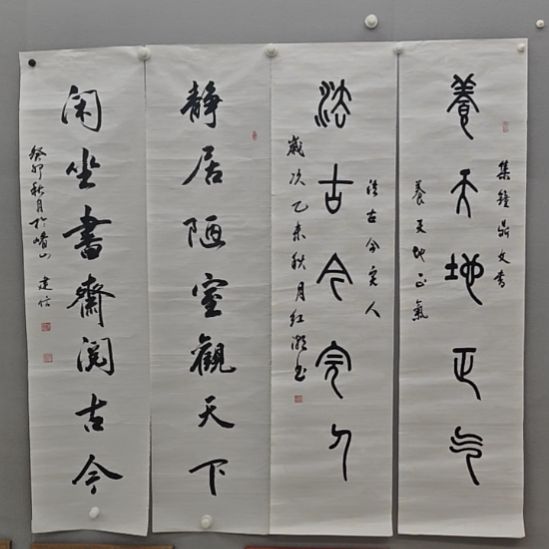 養天地正气
集鐘鼎文書
養天地正氣
法古今完人
法古今完人
歲次乙未秋月红
靜居陋室觀天下
闲坐書齋阅古今
癸卯秋月於嶗山 建信